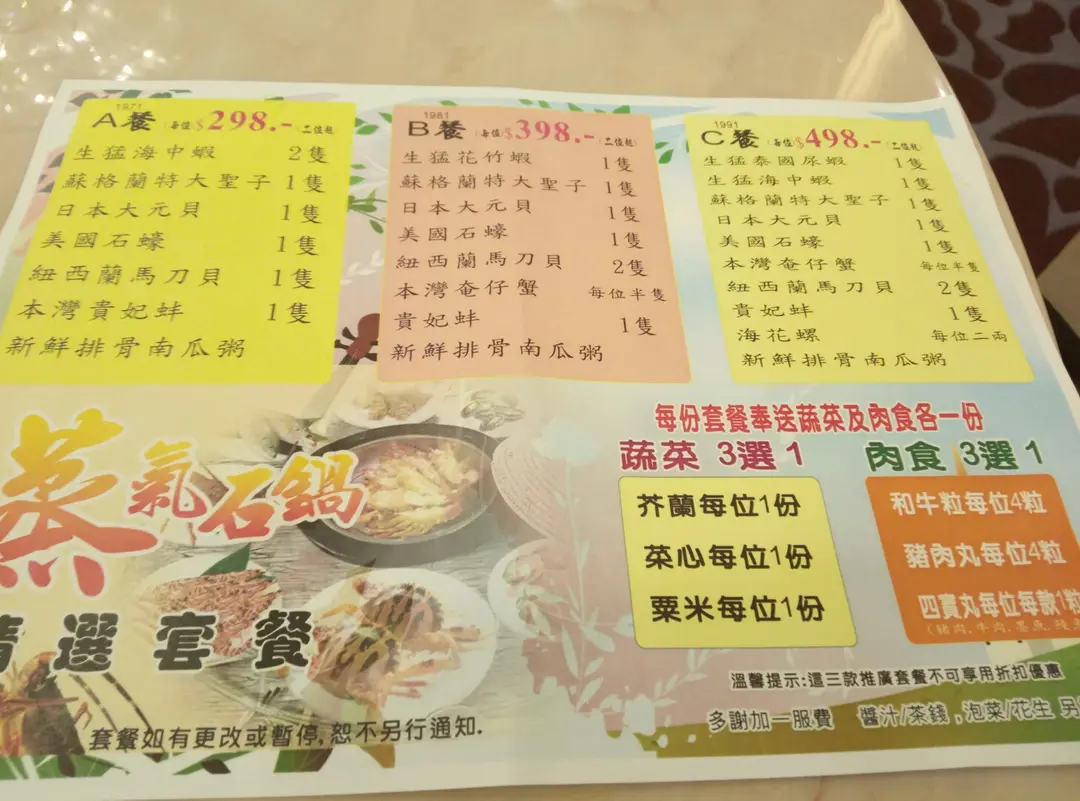 1971
A餐(每位)$298.-(二位起)
生猛海中蝦 2隻
蘇格蘭特大聖子 1隻
日本大元貝 1隻
美國石蠔 1隻
紐西蘭馬刀貝 1隻
本灣貴妃蚌 1隻
新鮮排骨南瓜粥
1981
B餐(每位)$398.-(二位起)
生猛花竹蝦 1隻
蘇格蘭特大聖子 1隻
日本大元貝 1隻
美國石蠔 1隻
紐西蘭馬刀貝 2隻
本灣奄仔蟹 每位半隻
貴妃蚌 1隻
新鮮排骨南瓜粥
1991
C餐(每位)$498.-(二位起)
生猛泰國尿蝦 1隻
生猛海中蝦 1隻
蘇格蘭特大聖子 1隻
日本大元貝 1隻
美國石蠔 1隻
本灣奄仔蟹 每位半隻
紐西蘭馬刀貝 2隻
貴妃蚌 1隻
海花螺 每位二兩
新鮮排骨南瓜粥
蒸氣石鍋
精選套餐
套餐如有更改或暫停,恕不另行通知.
每份套餐奉送蔬菜及肉食各一份
蔬菜 3選1
芥蘭每位1份
菜心每位1份
粟米每位1份
肉食 3選1
和牛粒每位4粒
豬肉丸每位4粒
四寶丸每位每款1粒
(豬肉.牛肉.墨魚.
溫馨提示:這三款推廣套餐不可享用折扣優惠
多謝加一服費 醬汁/茶錢,泡菜/花生 另